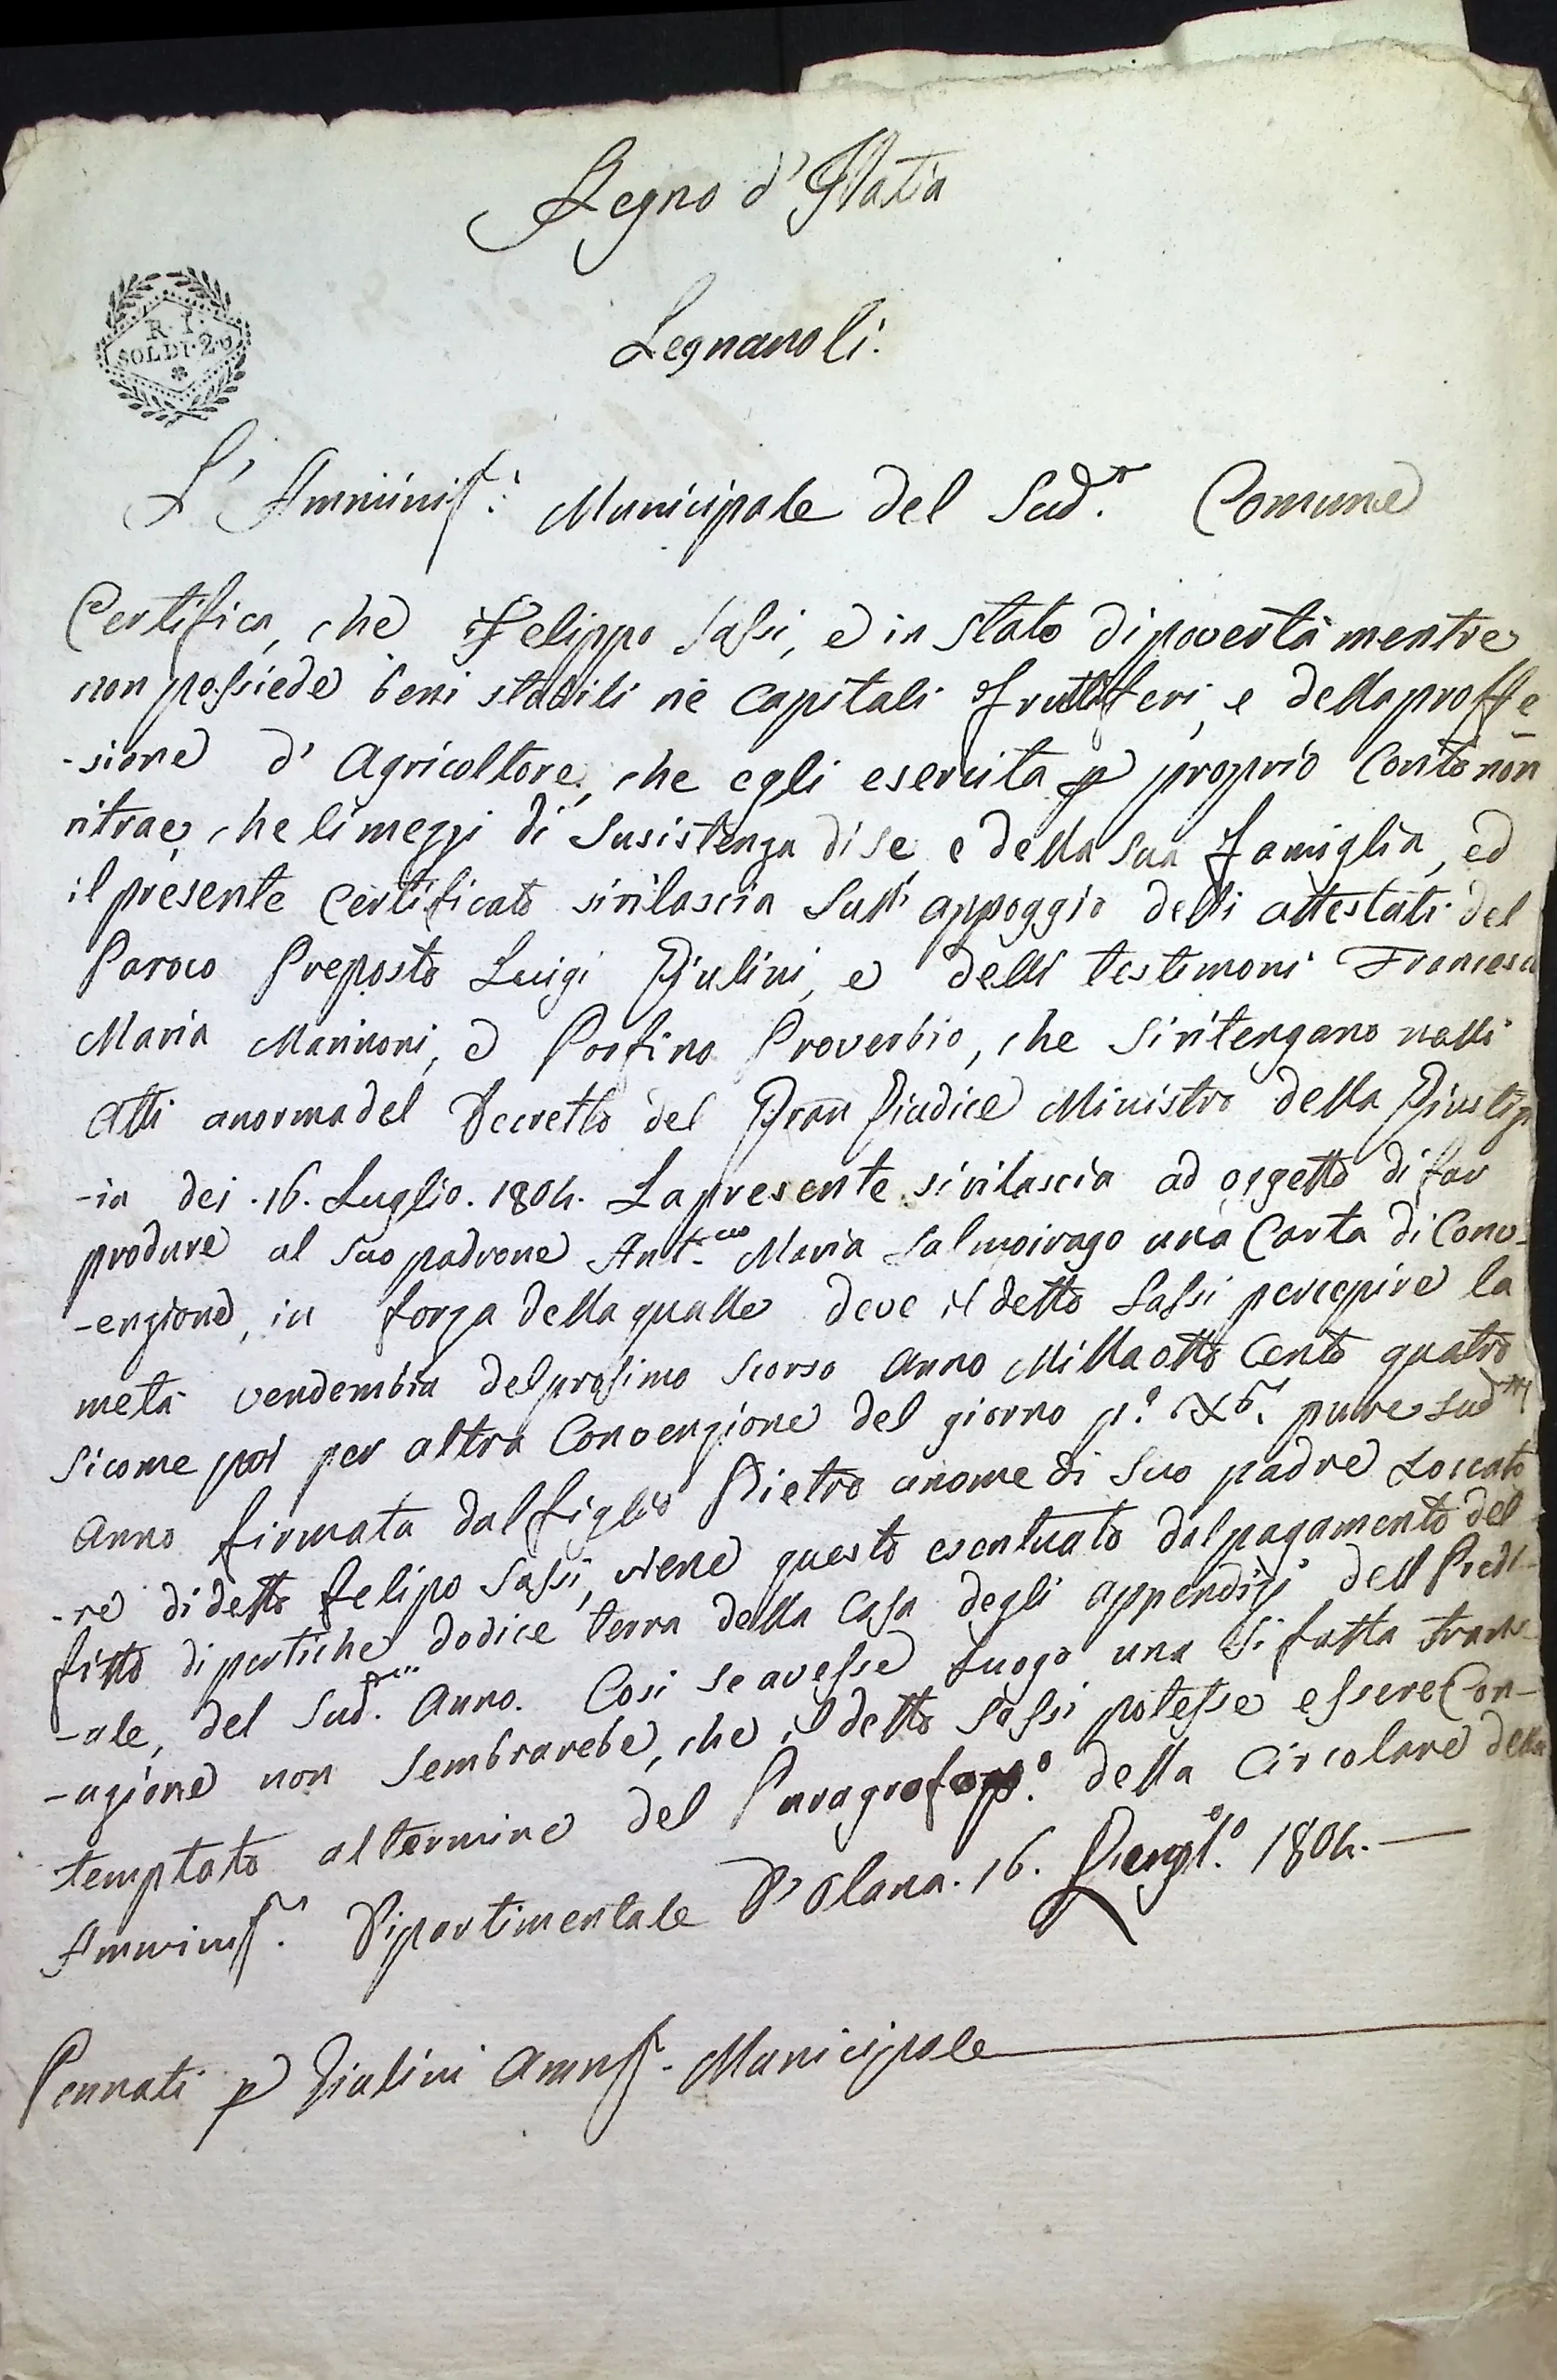 Regno d'Italia
Legnano li.
R. I.
SOLDI 20
L'Amminis.: Municipale del Sud.r Comune
Certifica, che Felippo Sassi, e in stato di povertà mentre
non possiede beni stabili nè Capitali fruttiferi, e della proffe
-sione d'Agricoltore, che egli esercita p proprio Conto non
ritrae, che li mezzi di Susistenza di se, e della sua famiglia, ed
il presente Certificato si rilascia Sull'appoggio delli attestati del
Paroco Preposto Luigi Giulini, e delli testimoni Francesco
Maria Marinoni, e Porfino Proverbio, che si ritengano nelli
atti a norma del Decretto del Gran Giudice Ministro della Giustiz
-ia dei .16. Luglio. 1804. La presente si rilascia ad oggetto di far
produre al suo padrone Ant. Maria Salmoirago una Carta di Conv-
-enzione, in forza della qualle deve il detto Sassi percepire la
metà vendembia del prosimo scorso anno Mille otto Cento quatro
Sicome poi per altra Convenzione del giorno p.° Xb. pure sud.
anno firmata dal figlio Pietro a nome di suo padre Locato
-re di detto Felipo Sassi, viene questo esentuato dal pagamento del
fitto di pertiche dodice terra della Casa degli appendizj dell
-ale, del Sud. Anno. Cosi se avesse Luogo una si fatta trans-
-azione non Sembrarebe, che il detto Sassi potesse essere Con-
-temptato al termine del Paragrafo p.° della Circolare della
Amminis. Dipartimentale D'Olana. 16. 1804.
Pennati p Giulini Amms. Municipale